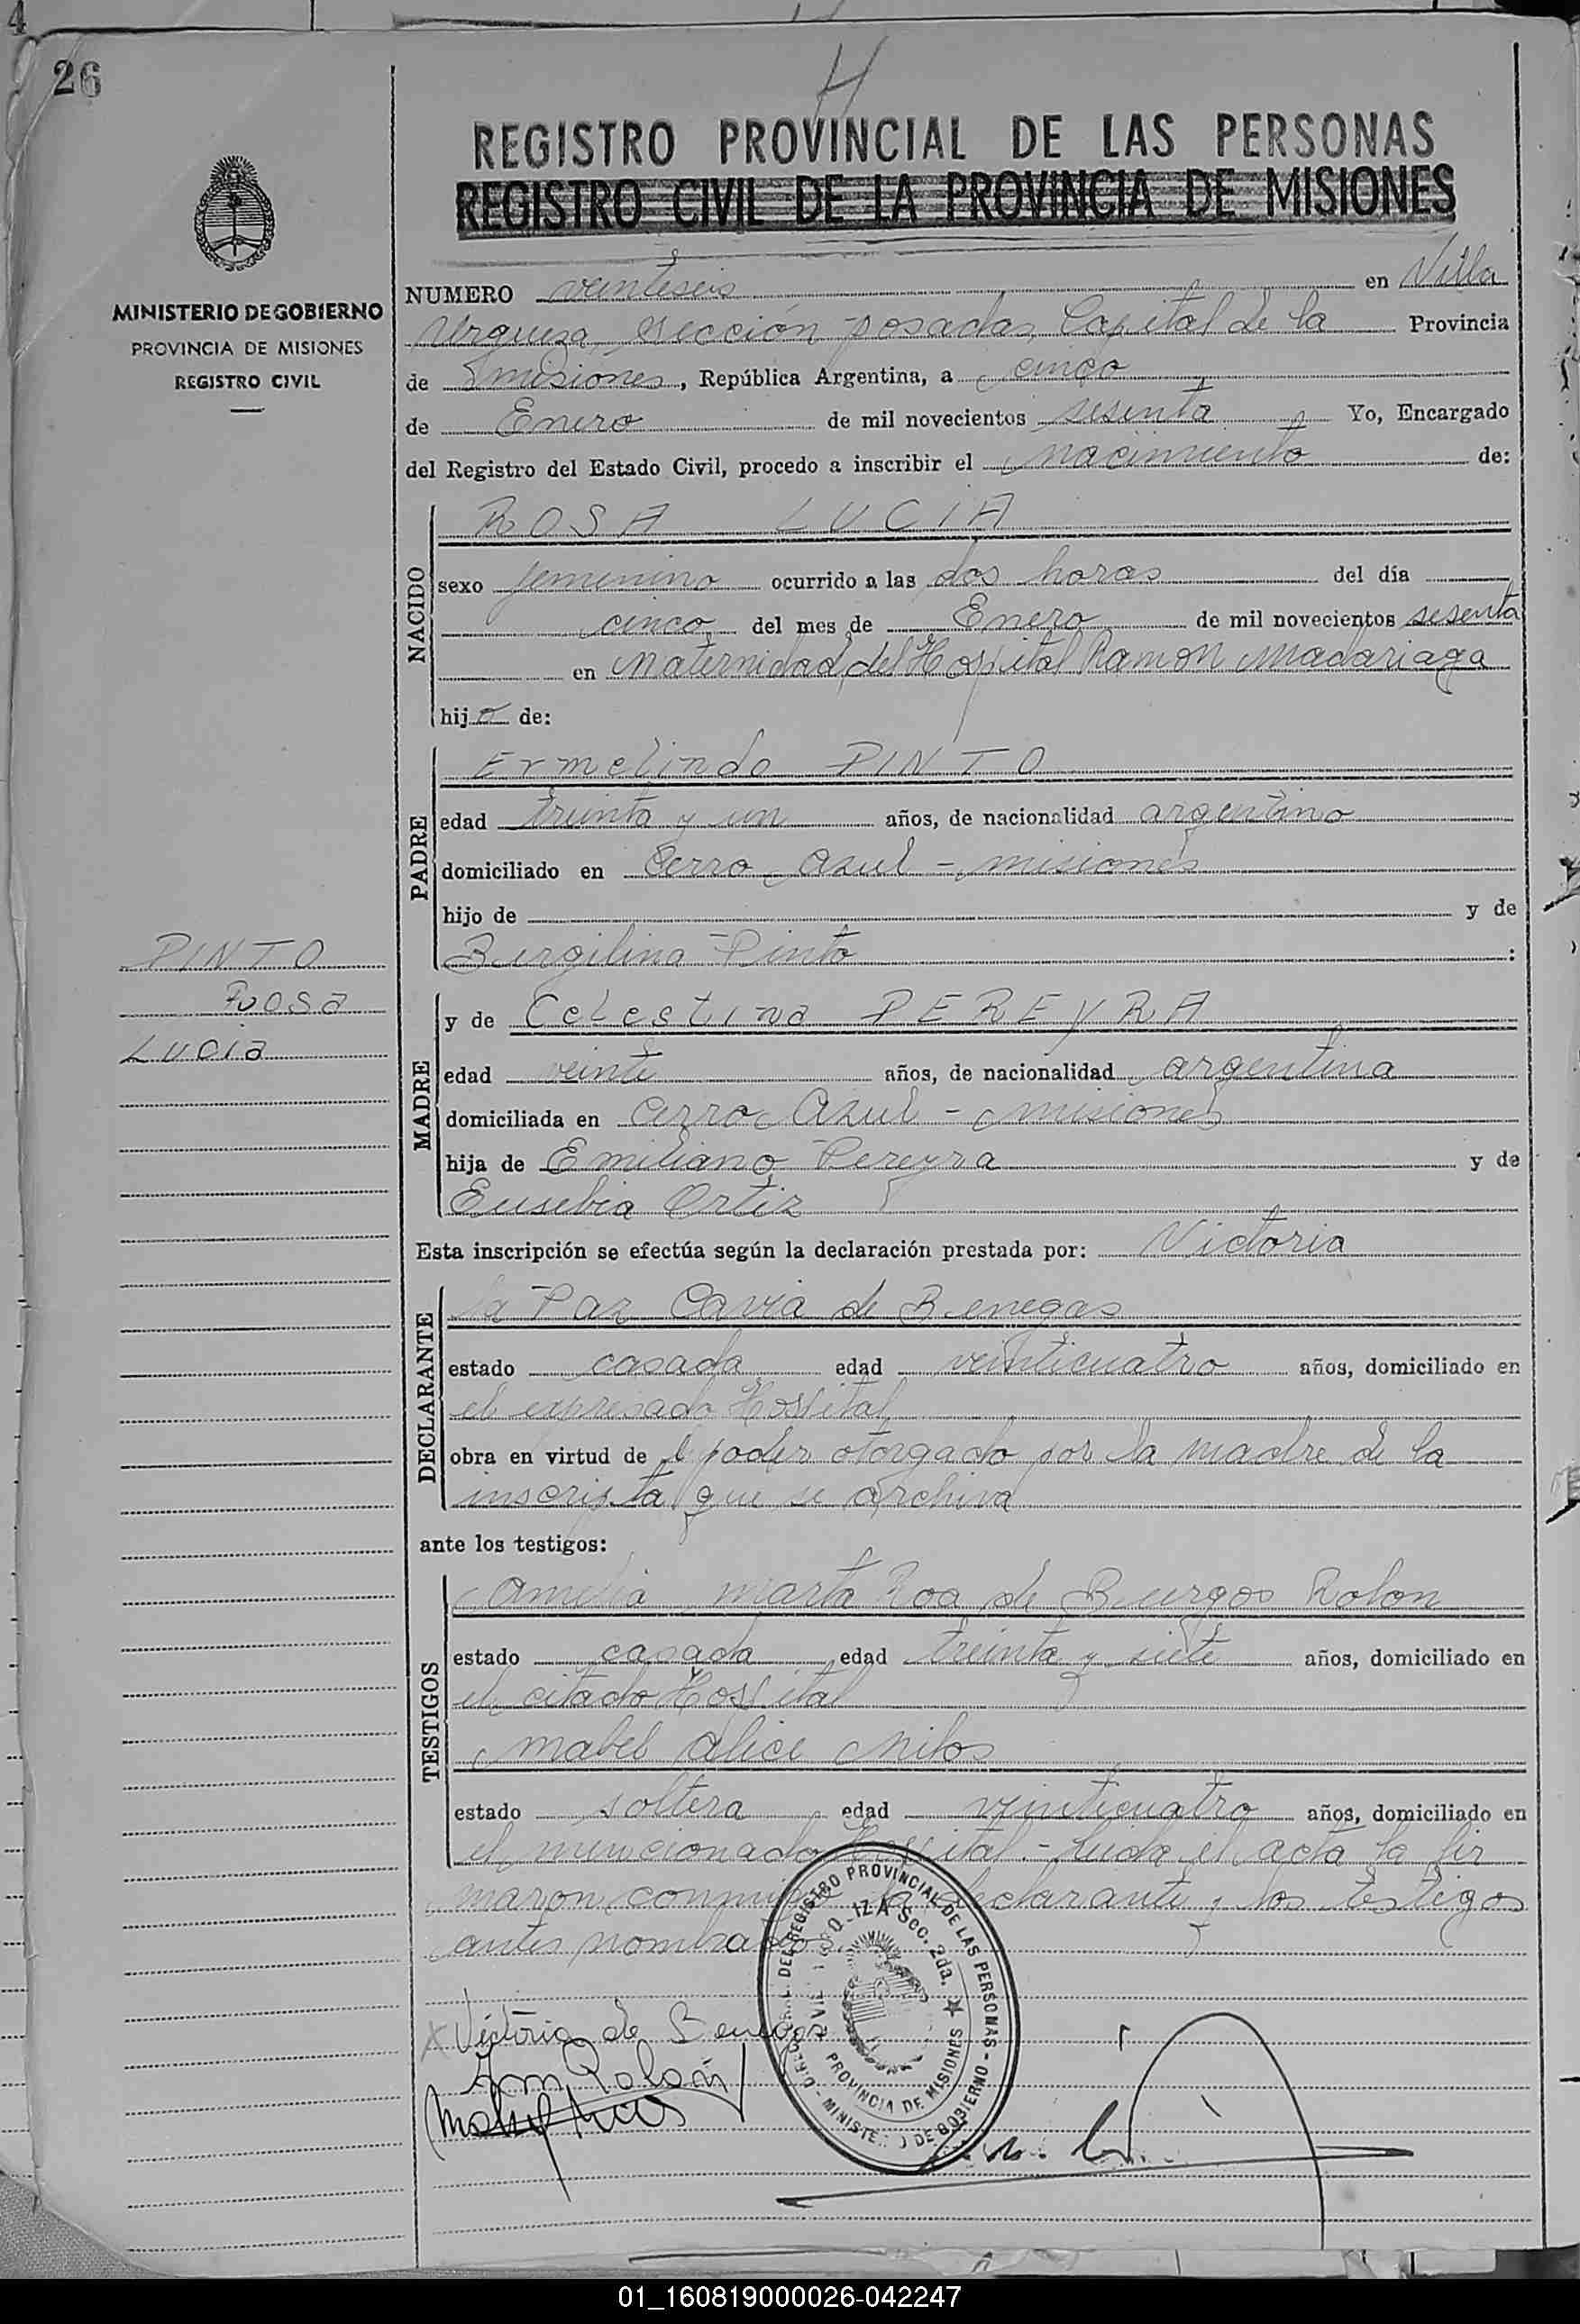 4
26
H
REGISTRO PROVINCIAL DE LAS PERSONAS
REGISTRO CIVIL DE LA PROVINCIA DE MISIONES
MINISTERIO DE GOBIERNO
PROVINCIA DE MISIONES
REGISTRO CIVIL
NUMERO veintiseis en Villa
Urquiza, Sección Posadas, Capital de la Provincia
de Misiones, República Argentina, a cinco
de Enero de mil novecientos sesenta Yo, Encargado
del Registro del Estado Civil, procedo a inscribir el nacimiento de:
NACIDO
ROSA LUCIA
sexo femenino ocurrido a las dos horas del día
cinco del mes de Enero de mil novecientos sesenta
en Maternidad del Hospital Ramon Madariaga
hija de:
PADRE
Ermelindo PINTO
edad treinta y un años, de nacionalidad argentino
domiciliado en Cerro Azul - Misiones
hijo de y de
Burgilina Pinto :
PINTO
Rosa
Lucia
MADRE
y de Celestina PEREYRA
edad veinte años, de nacionalidad argentina
domiciliada en Cerro Azul - Misiones
hija de Emiliano Pereyra y de
Eusebia Ortiz
Esta inscripción se efectúa según la declaración prestada por: Victoria
DECLARANTE
la Paz Cavia de Benegas
estado casada edad veinticuatro años, domiciliado en
el expresado Hospital
obra en virtud de poder otorgado por la madre de la
inscripta que se archiva
ante los testigos:
TESTIGOS
Amelia Marta Roa de Burgos Rolon
estado casada edad treinta y siete años, domiciliado en
el citado Hospital
Mabel Alice
estado soltera edad veinticuatro años, domiciliado en
el mencionado Hospital.- Leida el acta la fir
maron conmigo la declarante y los testigos
antes nombrados.
DEL REGISTRO PROVINCIAL DE LAS PERSONAS - MINISTERIO DE GOBIERNO -
Sec. 2da.
PROVINCIA DE MISIONES
x Victoria de Benegas
Rolón
01_160819000026-042247